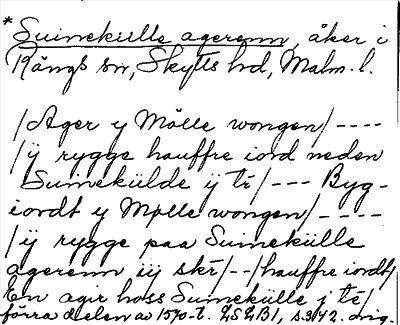 * Suinekulle agerenn, åker i
Rängs sn, Skytts hd, Malm. l.
/Ager y Mölle wongen/ ----
/ÿ rygge hauffre iord neden
Suinekülde ÿ tē/ --- Byg-
iordt y Mølle wongen/ ----
/ÿ rygge paa Suinekülle
agerenn iij skr̄/--/hauffre iordt/
En agir hoss Suinekülle j tē/
förra delen av 1570-t. LSLB1, s.342. orig.